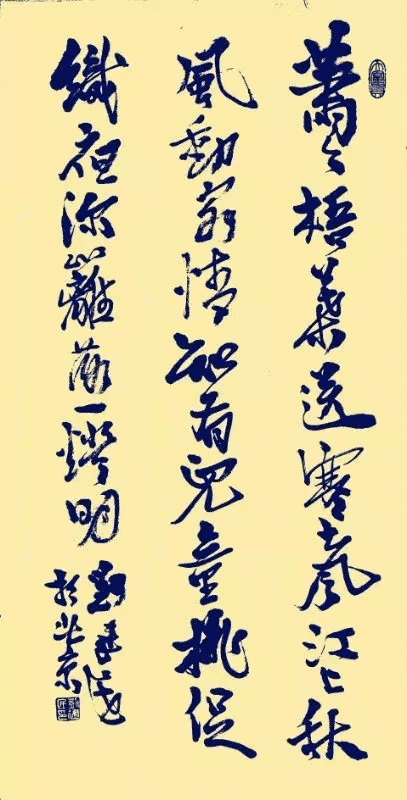 蕭々梧葉送寒聲江上秋
風動客情知有兒童挑促
織夜深籬落一燈明
劉
於北京